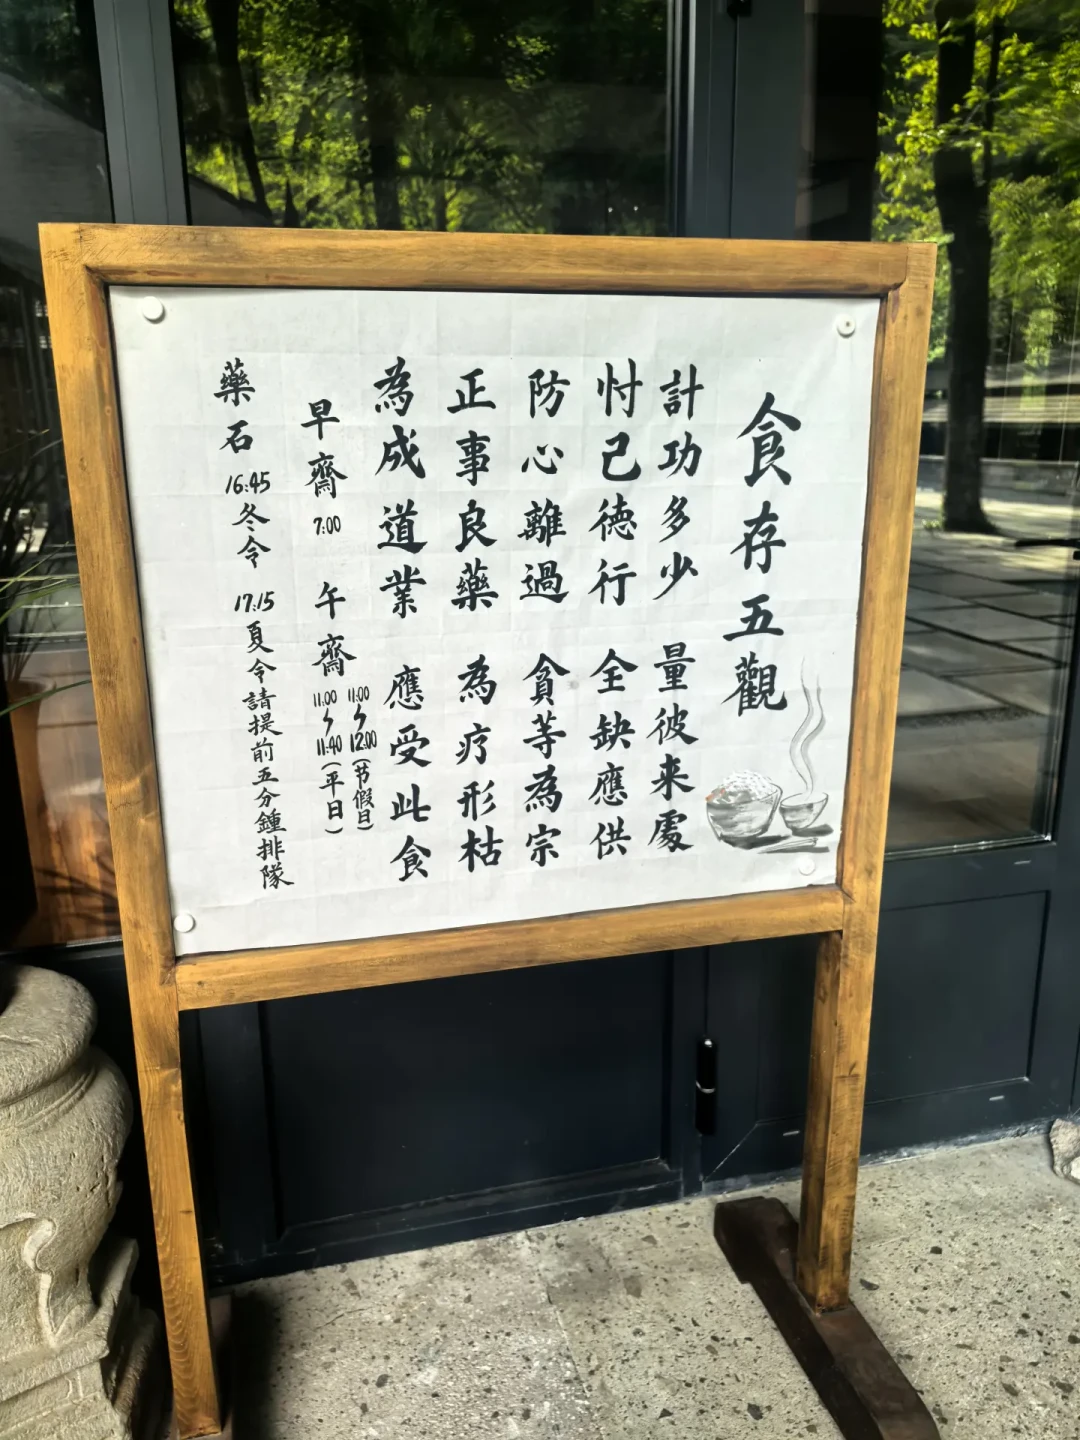 食存五觀
計功多少 量彼来處
忖己德行 全缺應供
防心離過 貪等為宗
正事良藥 為疗形枯
為成道業 應受此食
早齋 7:00 午齋 11:00~12:00(节假日) 11:00~11:40(平日)
藥石 16:45冬令 17:15夏令請提前五分鍾排隊